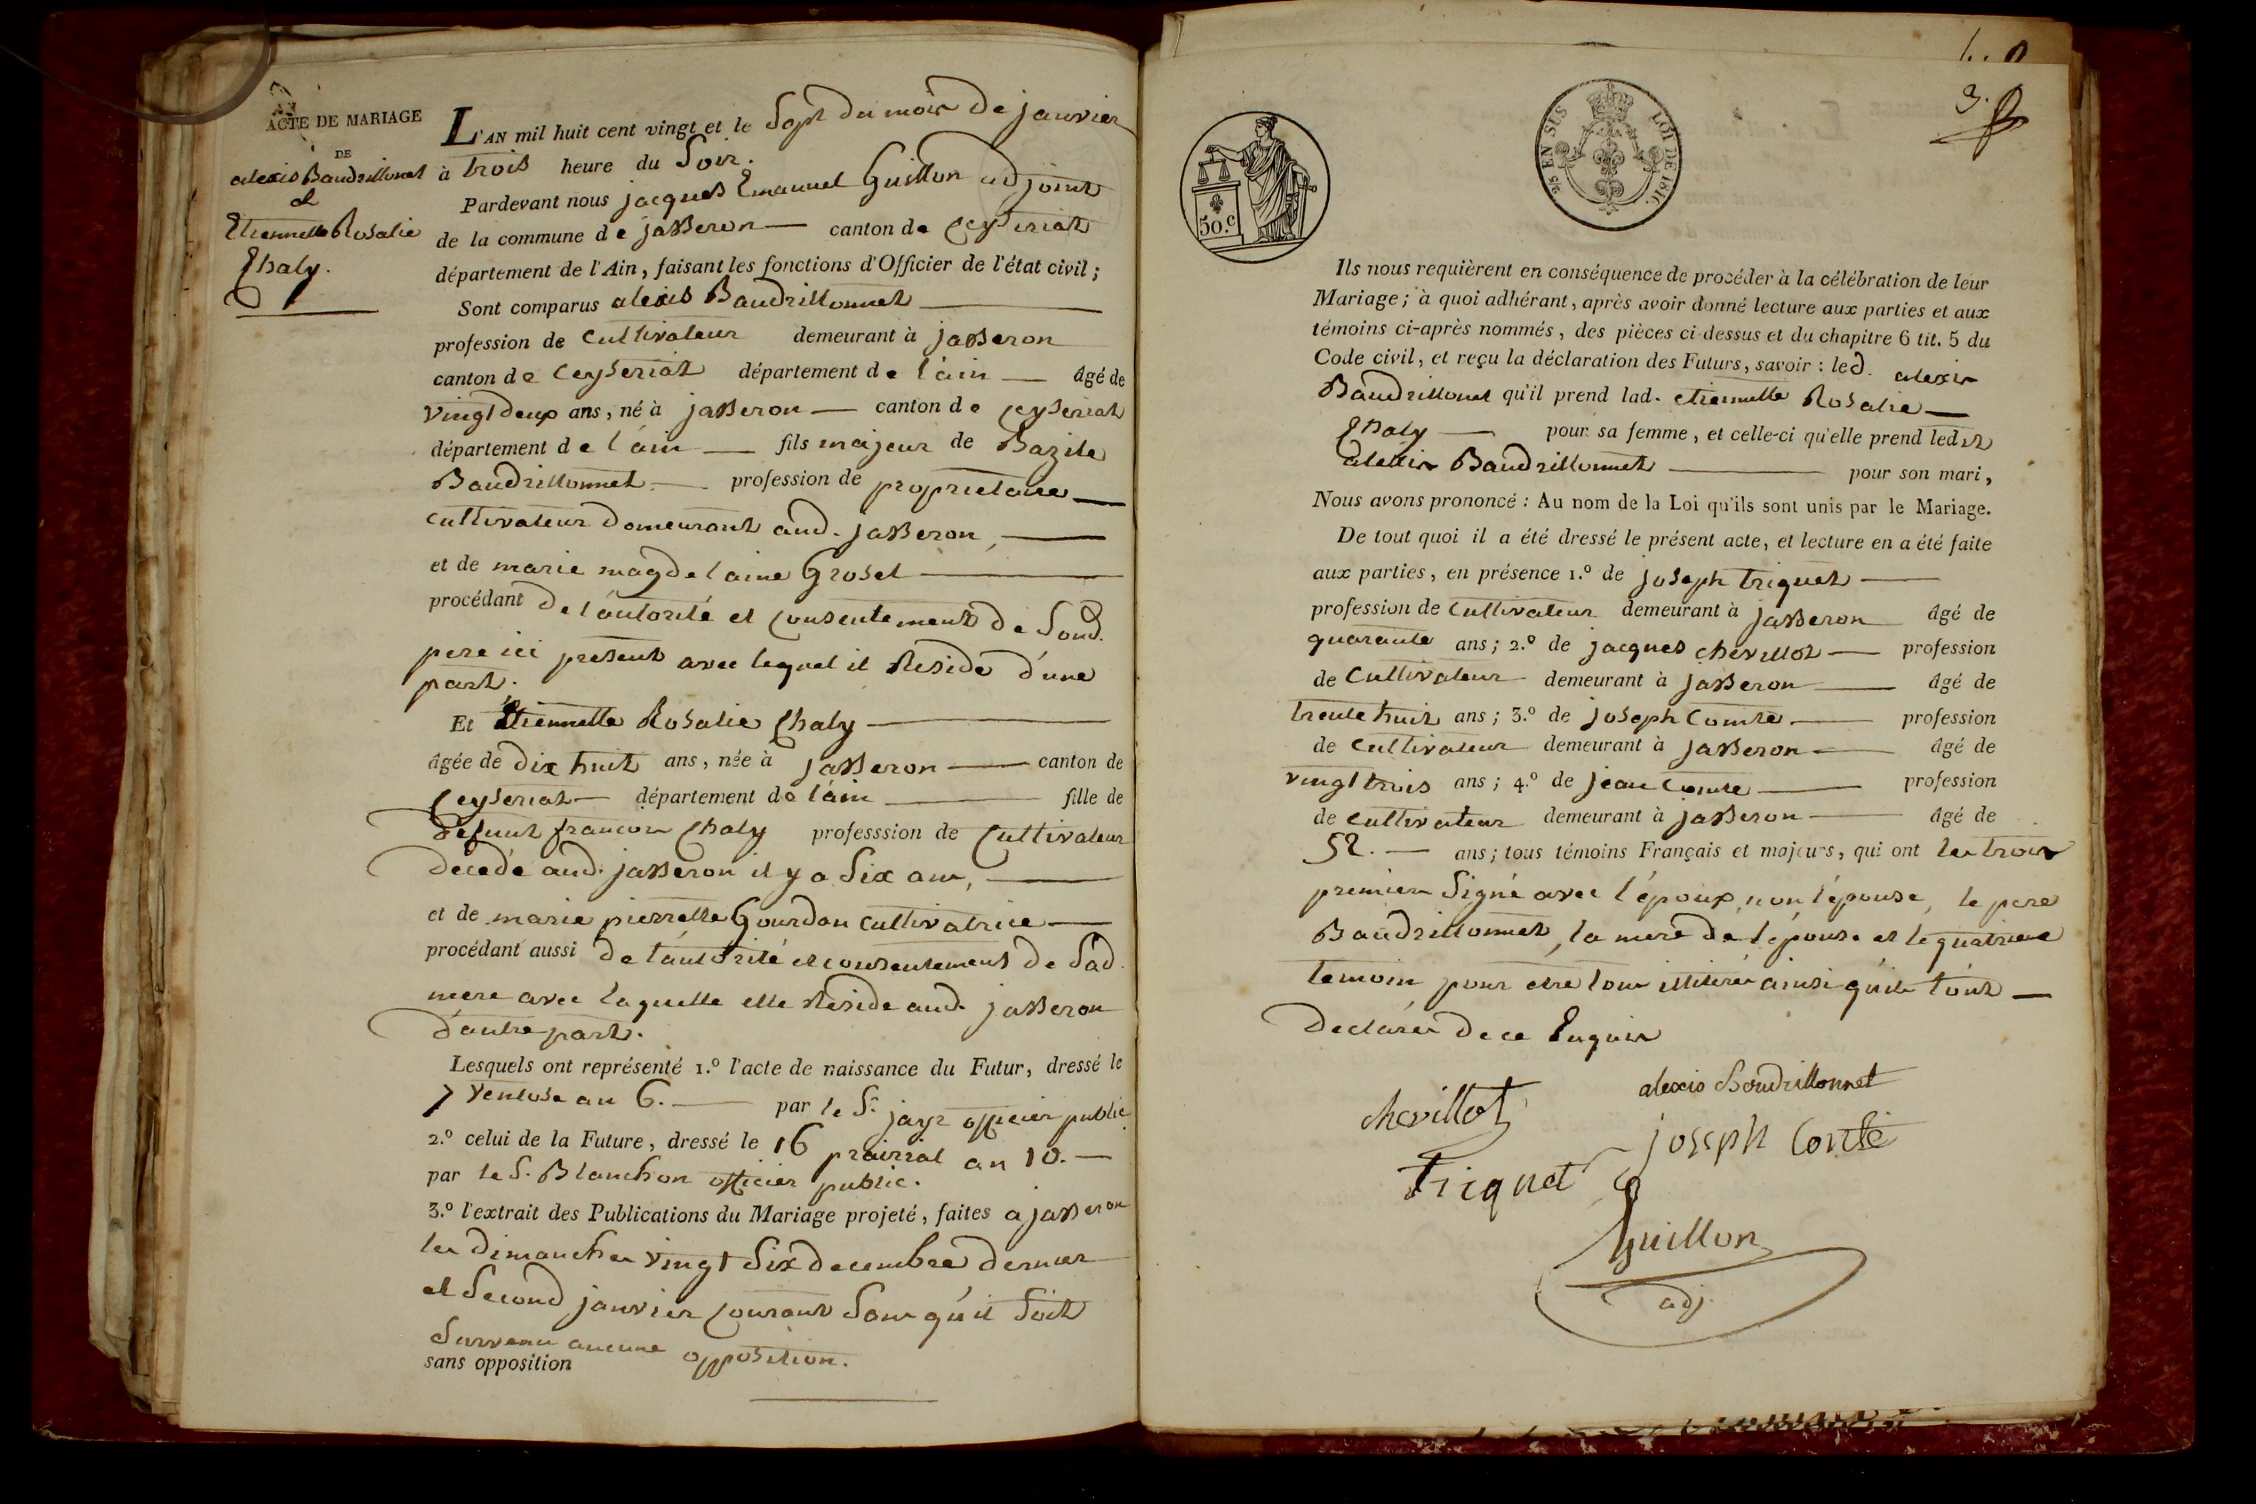 ACTE DE MARIAGE
DE
alexis Baudrillonet
et
Etiennette Rosalie
Chaly.
L'AN mil huit cent vingt et le Sept du mois de janvier
à trois heure du Soir.
Pardevant nous jacques Emanuel Guillon adjoint
de la commune de jasseron canton de Ceyseriat
département de l'Ain, faisant les fonctions d'Officier de l'état civil ;
Sont comparus alexis Baudrillonnet
profession de cultivateur demeurant à jasseron
canton de Ceyseriat département de l'ain âgé de
vingt deux ans, né à jasseron canton de Ceyseriat
département de l'ain fils majeur de Bazile
Baudrillonnet profession de proprietaire
cultivateur demeurant aud. jasseron,
et de marie magdelaine Grosel
procédant de l'autorité et consentement de Sond.
pere ici présent avec lequel il Reside d'une
part.
Et Etiennette Rosalie Chaly
âgée de dix huit ans, née à jasseron canton de
Ceyseriat département de l'ain fille de
defunt francois Chaly professsion de Cultivateur
décédé aud. jasseron il y a Six ans,
et de marie pierrette Gourdan cultivatrice
procédant aussi de l'autorité et consentement de Sad.
mere avec laquelle elle Reside aud. jasseron
d'autre part.
Lesquels ont représenté 1.º l'acte de naissance du Futur, dressé le
7 Ventose an 6. par le S.r jayr officier public
2.º celui de la Future, dressé le 16 prairial an 10.
par le S. Blanchon officier public.
3.º l'extrait des Publications du Mariage projeté, faites a jasseron
les dimanches vingt Six decembre dernier
et Second janvier Courant Sans qu'il Soit
Survenu aucune opposition.
sans opposition
3.
50.c
25 EN SUS
LOI DE 1816.
Ils nous requièrent en conséquence de procéder à la célébration de leur
Mariage ; à quoi adhérant, après avoir donné lecture aux parties et aux
témoins ci-après nommés, des pièces ci-dessus et du chapitre 6 tit. 5 du
Code civil, et reçu la déclaration des Futurs, savoir : led. alexis
Baudrillonet qu'il prend lad. etiennette Rosalie
Chaly pour sa femme, et celle-ci qu'elle prend ledit
alexis Baudrillonnet pour son mari,
Nous avons prononcé : Au nom de la Loi qu'ils sont unis par le Mariage.
De tout quoi il a été dressé le présent acte, et lecture en a été faite
aux parties, en présence 1.º de joseph triquet
profession de Cultivateur demeurant à jasseron âgé de
quarante ans ; 2.º de jacques chevillot profession
de Cultivateur demeurant à jasseron âgé de
trente huit ans ; 3.º de joseph Comte profession
de Cultivateur demeurant à jasseron âgé de
vingt trois ans ; 4.º de jean Comte profession
de cultivateur demeurant à jasseron âgé de
52. ans ; tous témoins Français et majeurs, qui ont les trois
premiers Signé avec l'époux, non l'épouse, le pere
Baudrillonnet, la mere de l'épouse et le quatrieme
temoin pour etre tous illitérés ainsi qu'ils l'ont
declarés de ce Enquis
alexis Boudrillonnet
chevillot
joseph Conte
Triquet
Guillon
adj.